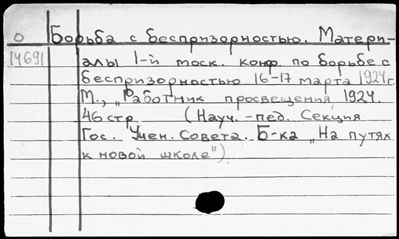 О Борьба с беспризорностью. Матери-
14691 алы 1-й моск. конф. по борьбе с
беспризорностью 16-17 марта 1924г.
М., „Работник просвещения", 1924.
46 стр. (Науч.-пед. Секция
Гос. Учен. Совета. Б-ка „На путях
к новой школе").